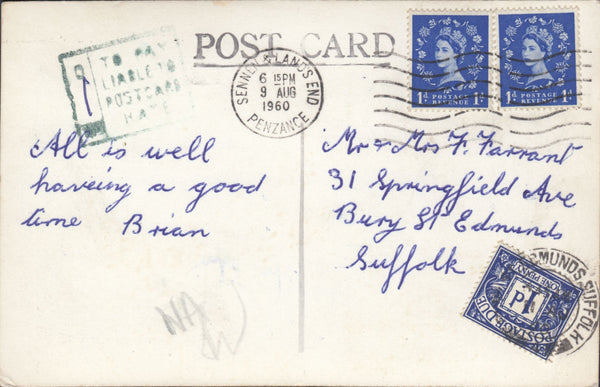 POST CARD
TO PAY
LIABLE TO
POSTCARD
RATE
SENNEN & LANDS END
6 15PM
9 AUG
1960
PENZANCE
1d POSTAGE REVENUE 1d
1d POSTAGE REVENUE 1d
All is well
haveing a good
time Brian
Mr & Mrs F. Farrant
31 Springfield Ave
Bury St Edmunds
Suffolk
NA
EDMUNDS SUFFOLK
POSTAGE DUE
1d
ONE PENNY